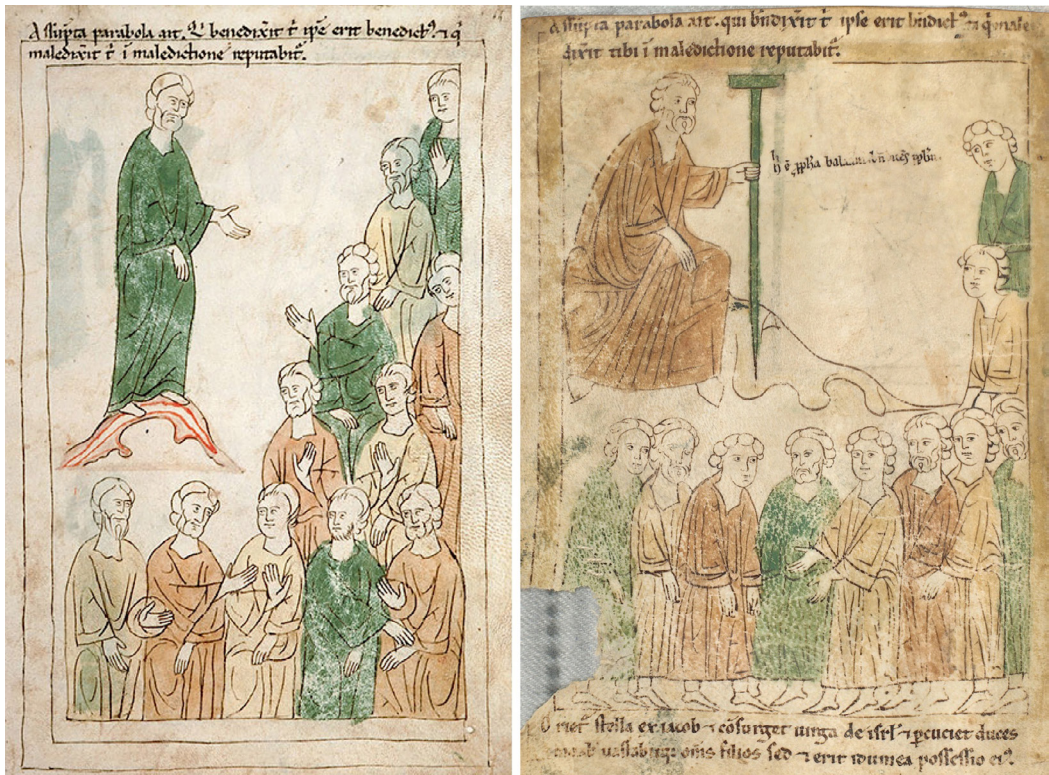 Assūpta parabola ait. Qͥ benedix̄it t̄ ip̄e erit benedictꝰ. ⁊ qͥ
maledix̄it t̄ ī maledictione reputabit᷑.
Assūpta parabola ait. qui bn̄dix̄it t̄ ipse erit bn̄dictꝰ. ⁊ qͥ male
dix̄it tibi ī maledictione reputabit᷑.
Oriet᷑ stella ex iacob ⁊ cōsurget uirga de isrl̄ ⁊ ꝑcuciet duces
moab uastabitqꝫ om̄s filios sed ⁊ erit idumea possessio eiꝰ.